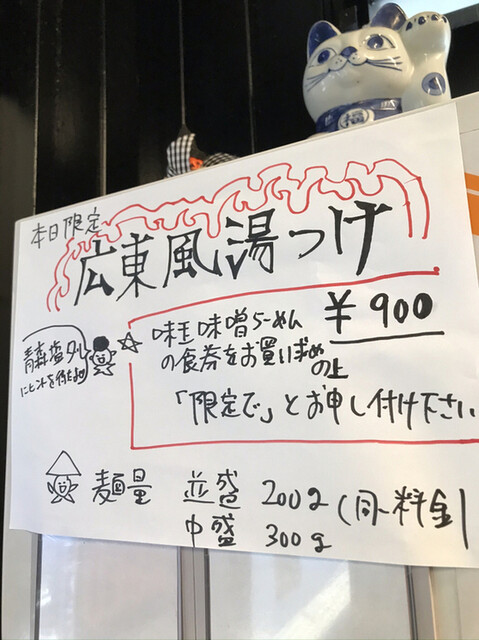 本日限定
広東風湯つけ
¥900
味玉味噌らーめん
の食券をお買い求めの上
「限定で」とお申し付け下さい
青森塩ダレ
にヒントを得たよ
麺量 並盛 200g (同一料金)
中盛 300g
福